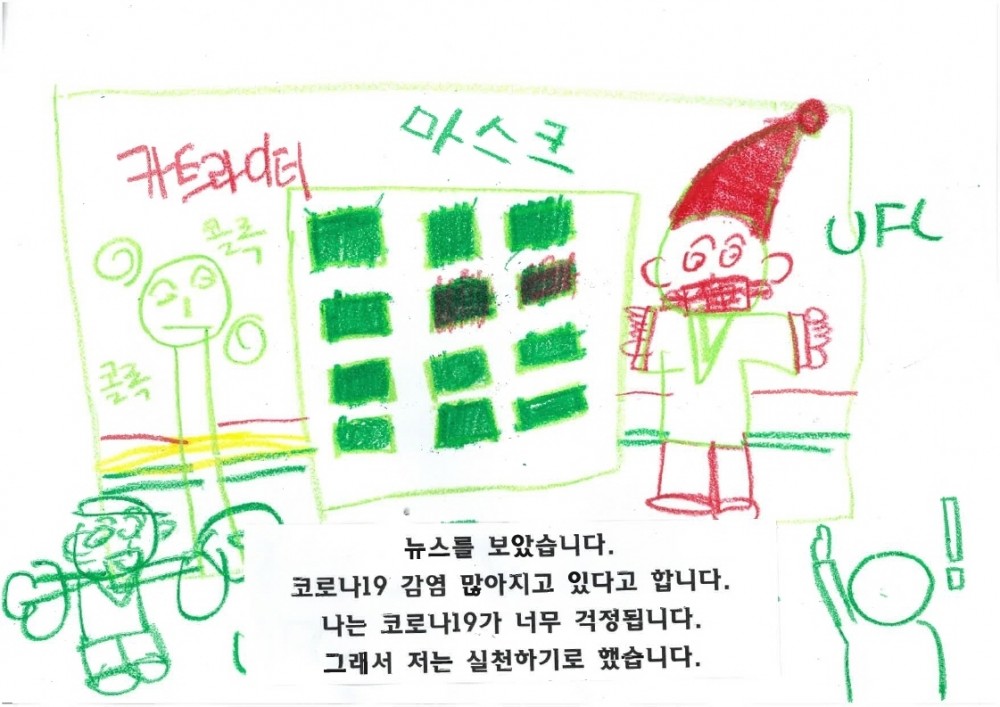 마스크
카트라이더
콜록
UFC
콜록
뉴스를 보았습니다.
코로나19 감염 많아지고 있다고 합니다.
나는 코로나19가 너무 걱정됩니다.
그래서 저는 실천하기로 했습니다.